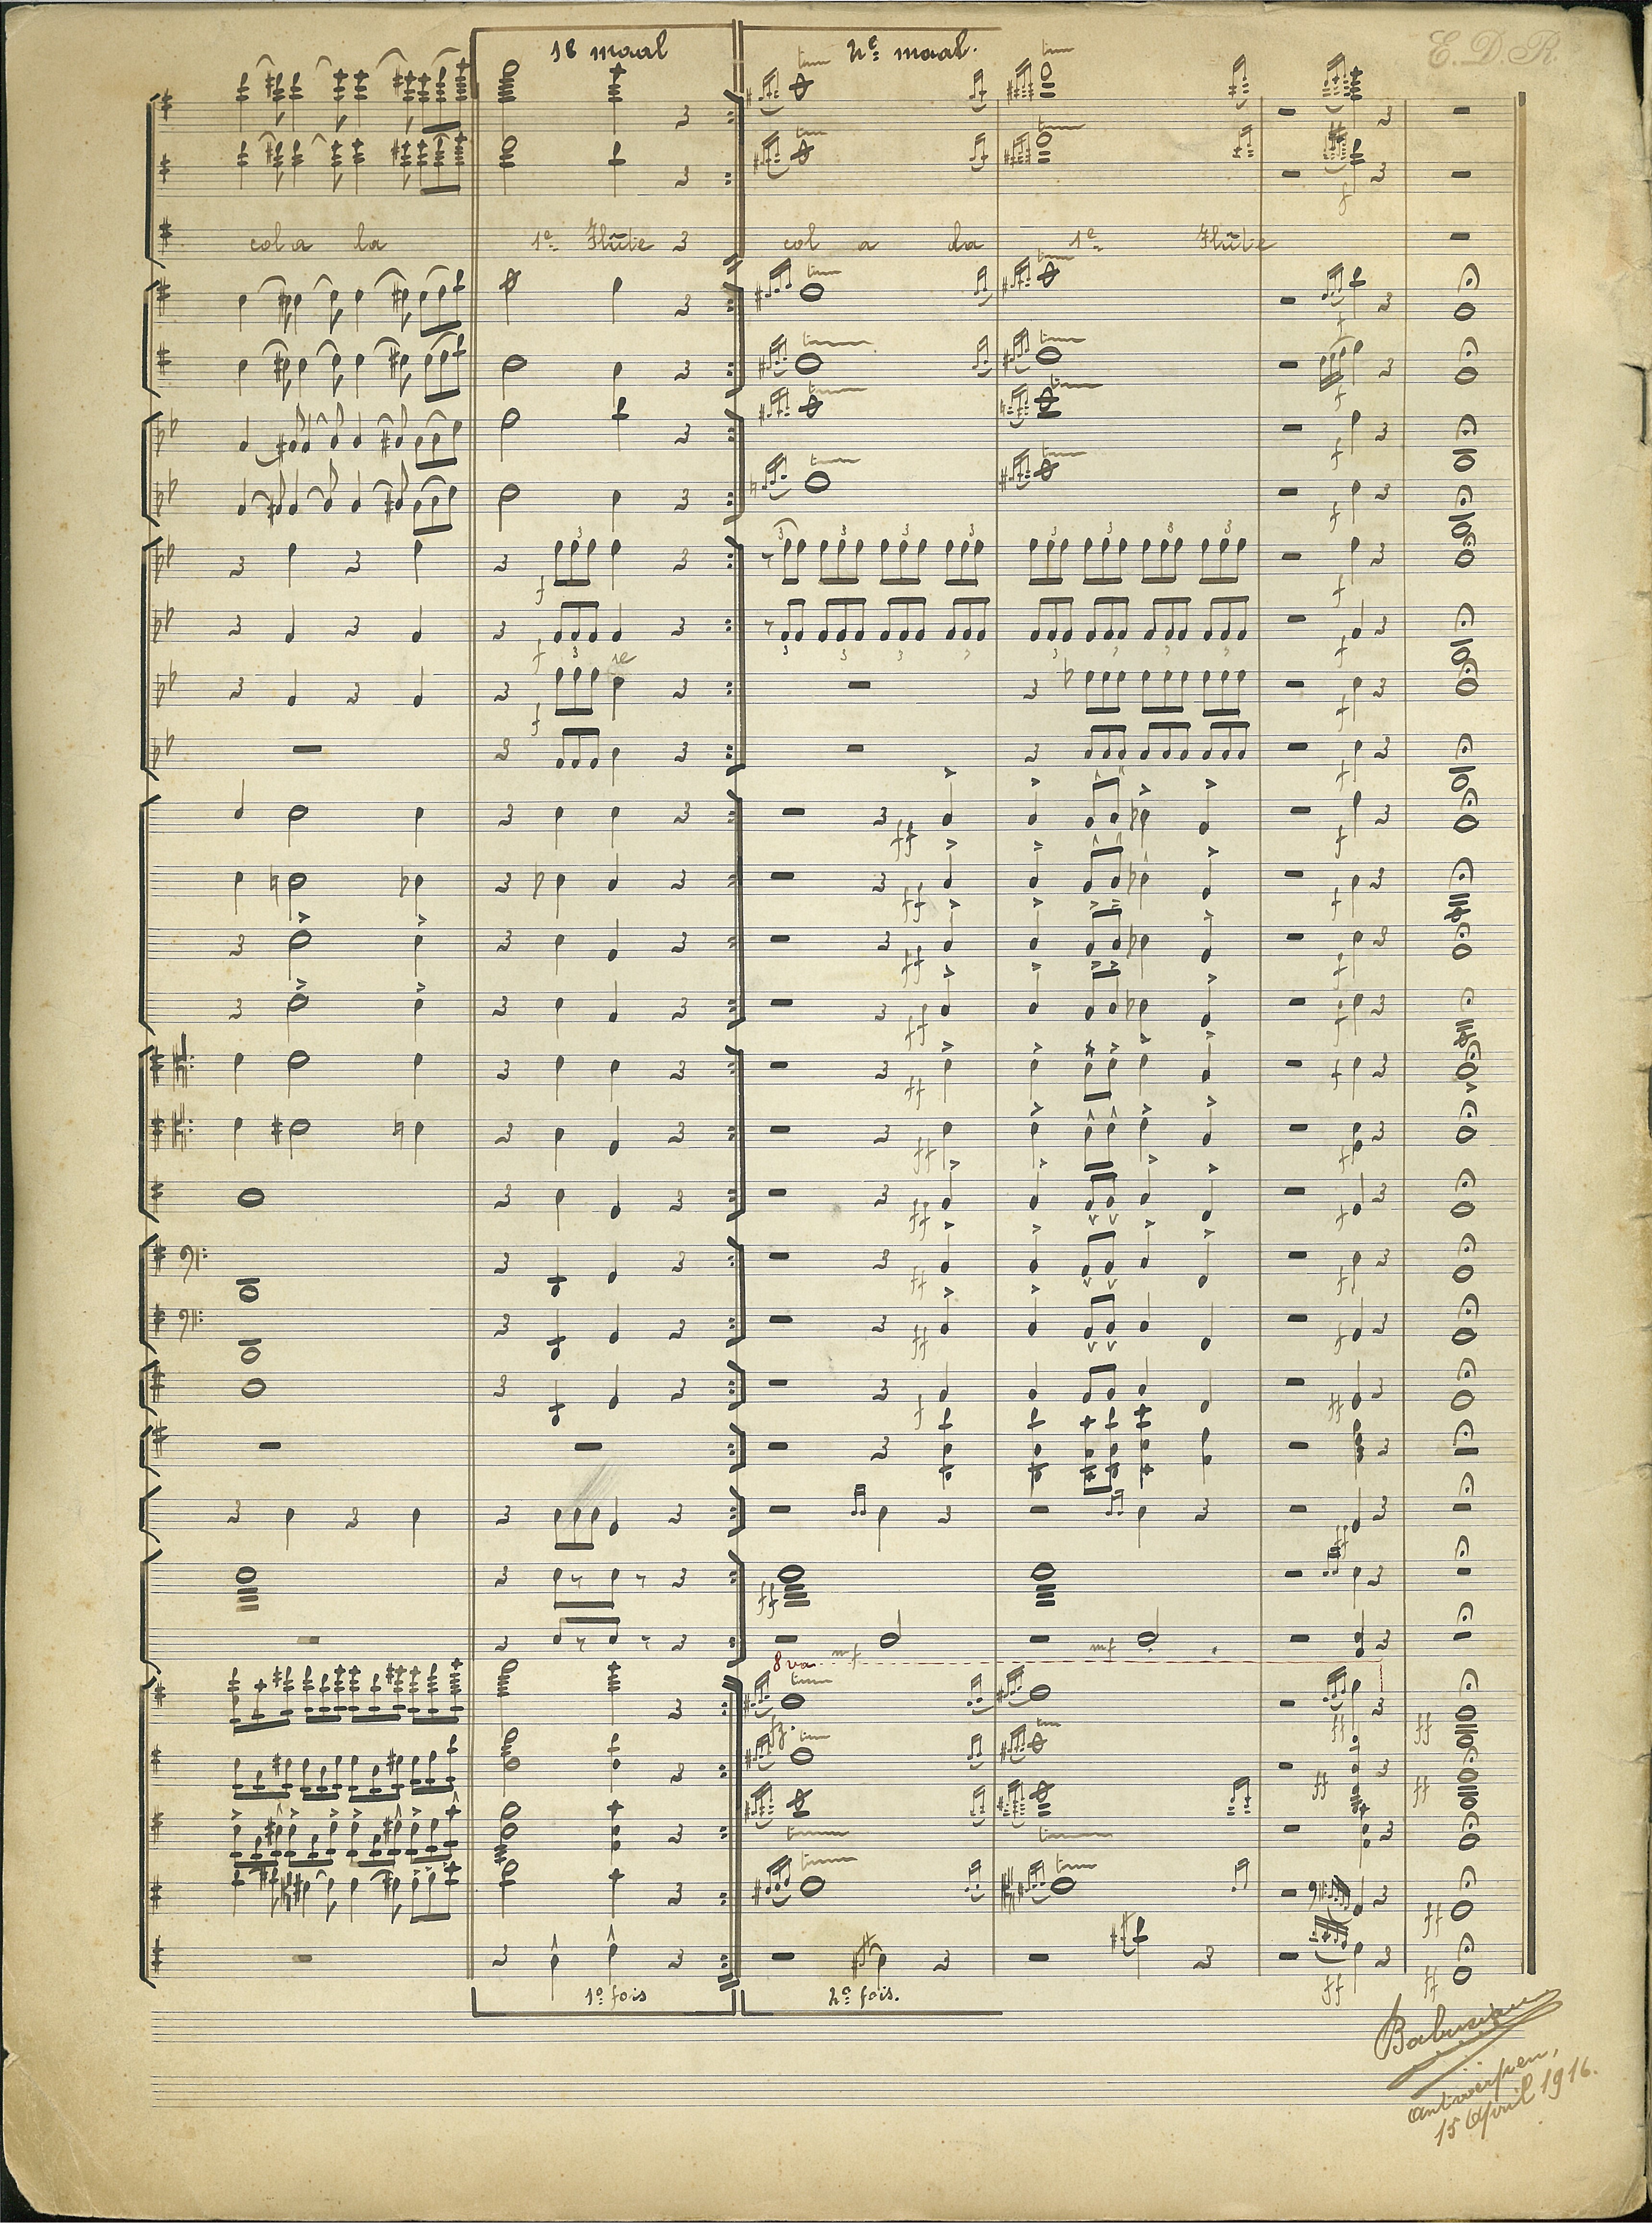 E. D. R.
1e maal
2e maal.
col a la 1e Flûte col a la 1e Flûte
8va
1e fois
2e fois.
Antwerpen,
15 April 1916.